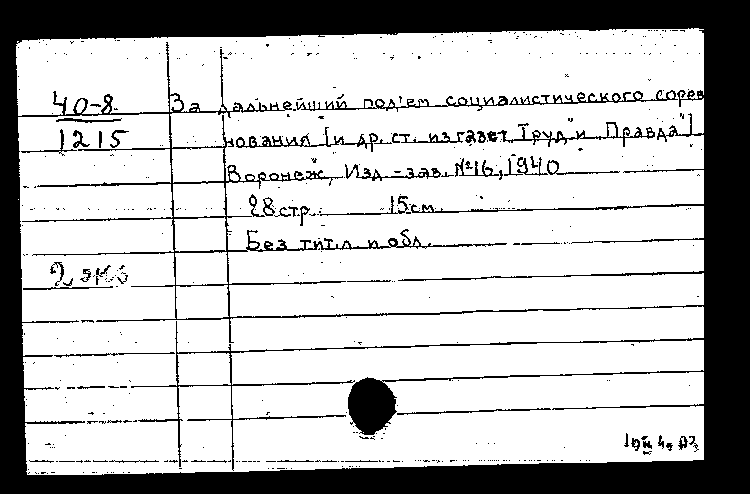 40-8
1215
За дальнейший под'ем социалистического сорев
нования [и др. ст. из газет "Труд" и "Правда"]
Воронеж, Изд-зав. №16, 1940
28 стр. 15 см.
Без тит. л. и обл.
2 экз